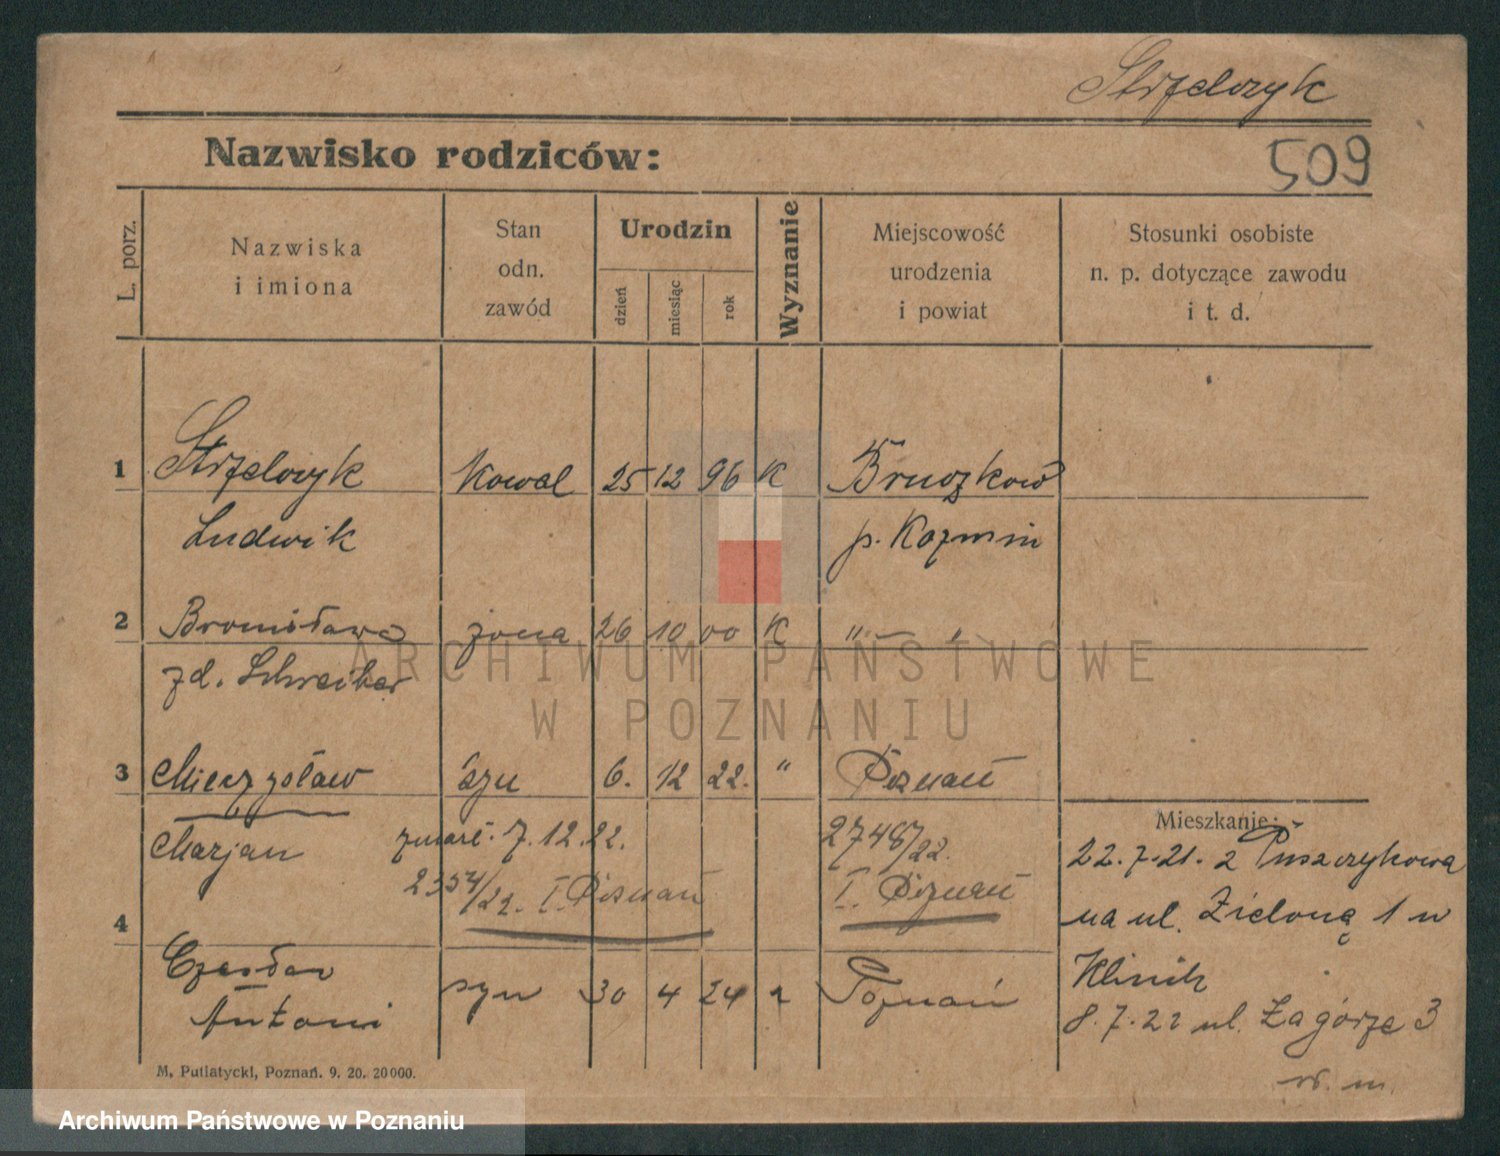 Strzelczyk
Nazwisko rodziców:
509
L. porz.
Nazwiska
i imiona
Stan
odn.
zawód
Urodzin
dzień
miesiąc
rok
Wyznanie
Miejscowość
urodzenia
i powiat
Stosunki osobiste
n. p. dotyczące zawodu
i t. d.
1 Strzelczyk Kowal 25 12 96 K Bruczków
Ludwik p. Kozmin
2 Bronisława zona 26 10 00 K " — "
zd. Schreiber
3 Mieczysław syn 6. 12 22. " Poznań
Marjan zmarł. 7.12.22. 2748/22.
2354/22. I. Poznań I. Poznań
4
Czesław
Antoni
syn 30 4 24 Poznań
Mieszkanie:
22.7.21. z Puszczykowa
na ul. Zieloną 1 w
Klinik
8.7.22 ul. Zagórze 3
w. m.
M. Putiatycki, Poznań. 9. 20. 20000.
ARCHIWUM PAŃSTWOWE
W POZNANIU
Archiwum Państwowe w Poznaniu